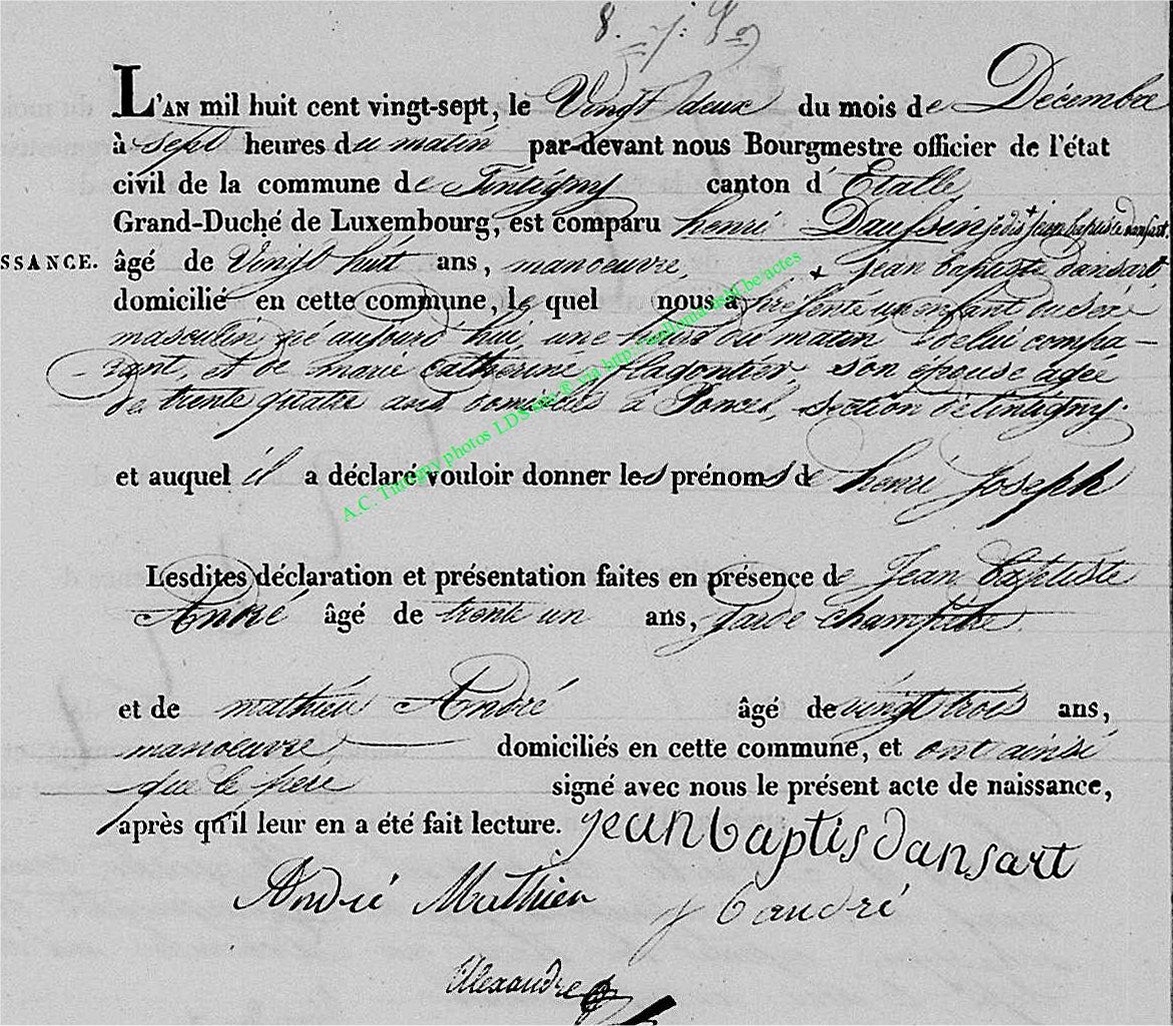 8. 
L'AN mil huit cent vingt-sept, le Vingt deux du mois de Décembre
à sept heures du matin par-devant nous Bourgmestre officier de l'état
civil de la commune de Tintigny canton d'Etalle
Grand-Duché de Luxembourg, est comparu henri jean baptiste dansart
SSANCE. âgé de Vingt huit ans, manoeuvre, + Jean baptiste dansart
domicilié en cette commune, le quel nous a présenté un enfant du sexe
masculin né aujourd'hui, une heure du matin de lui compa-
-rant, et de marie Catherine son épouse agée
de trente quatre ans domiciliés à Poncel, section de tintigny.
et auquel il a déclaré vouloir donner les prénoms de henri Joseph
Lesdites déclaration et présentation faites en présence de Jean Baptiste
André âgé de trente un ans, garde champêtre
et de mathieu André âgé de vingt trois ans,
manoeuvre domiciliés en cette commune, et ont ainsi
que le père signé avec nous le présent acte de naissance,
après qu'il leur en a été fait lecture. jean baptis dansart
André Mathieu j b andré
Alexandre
A.C. Tintigny photos LDS via http://